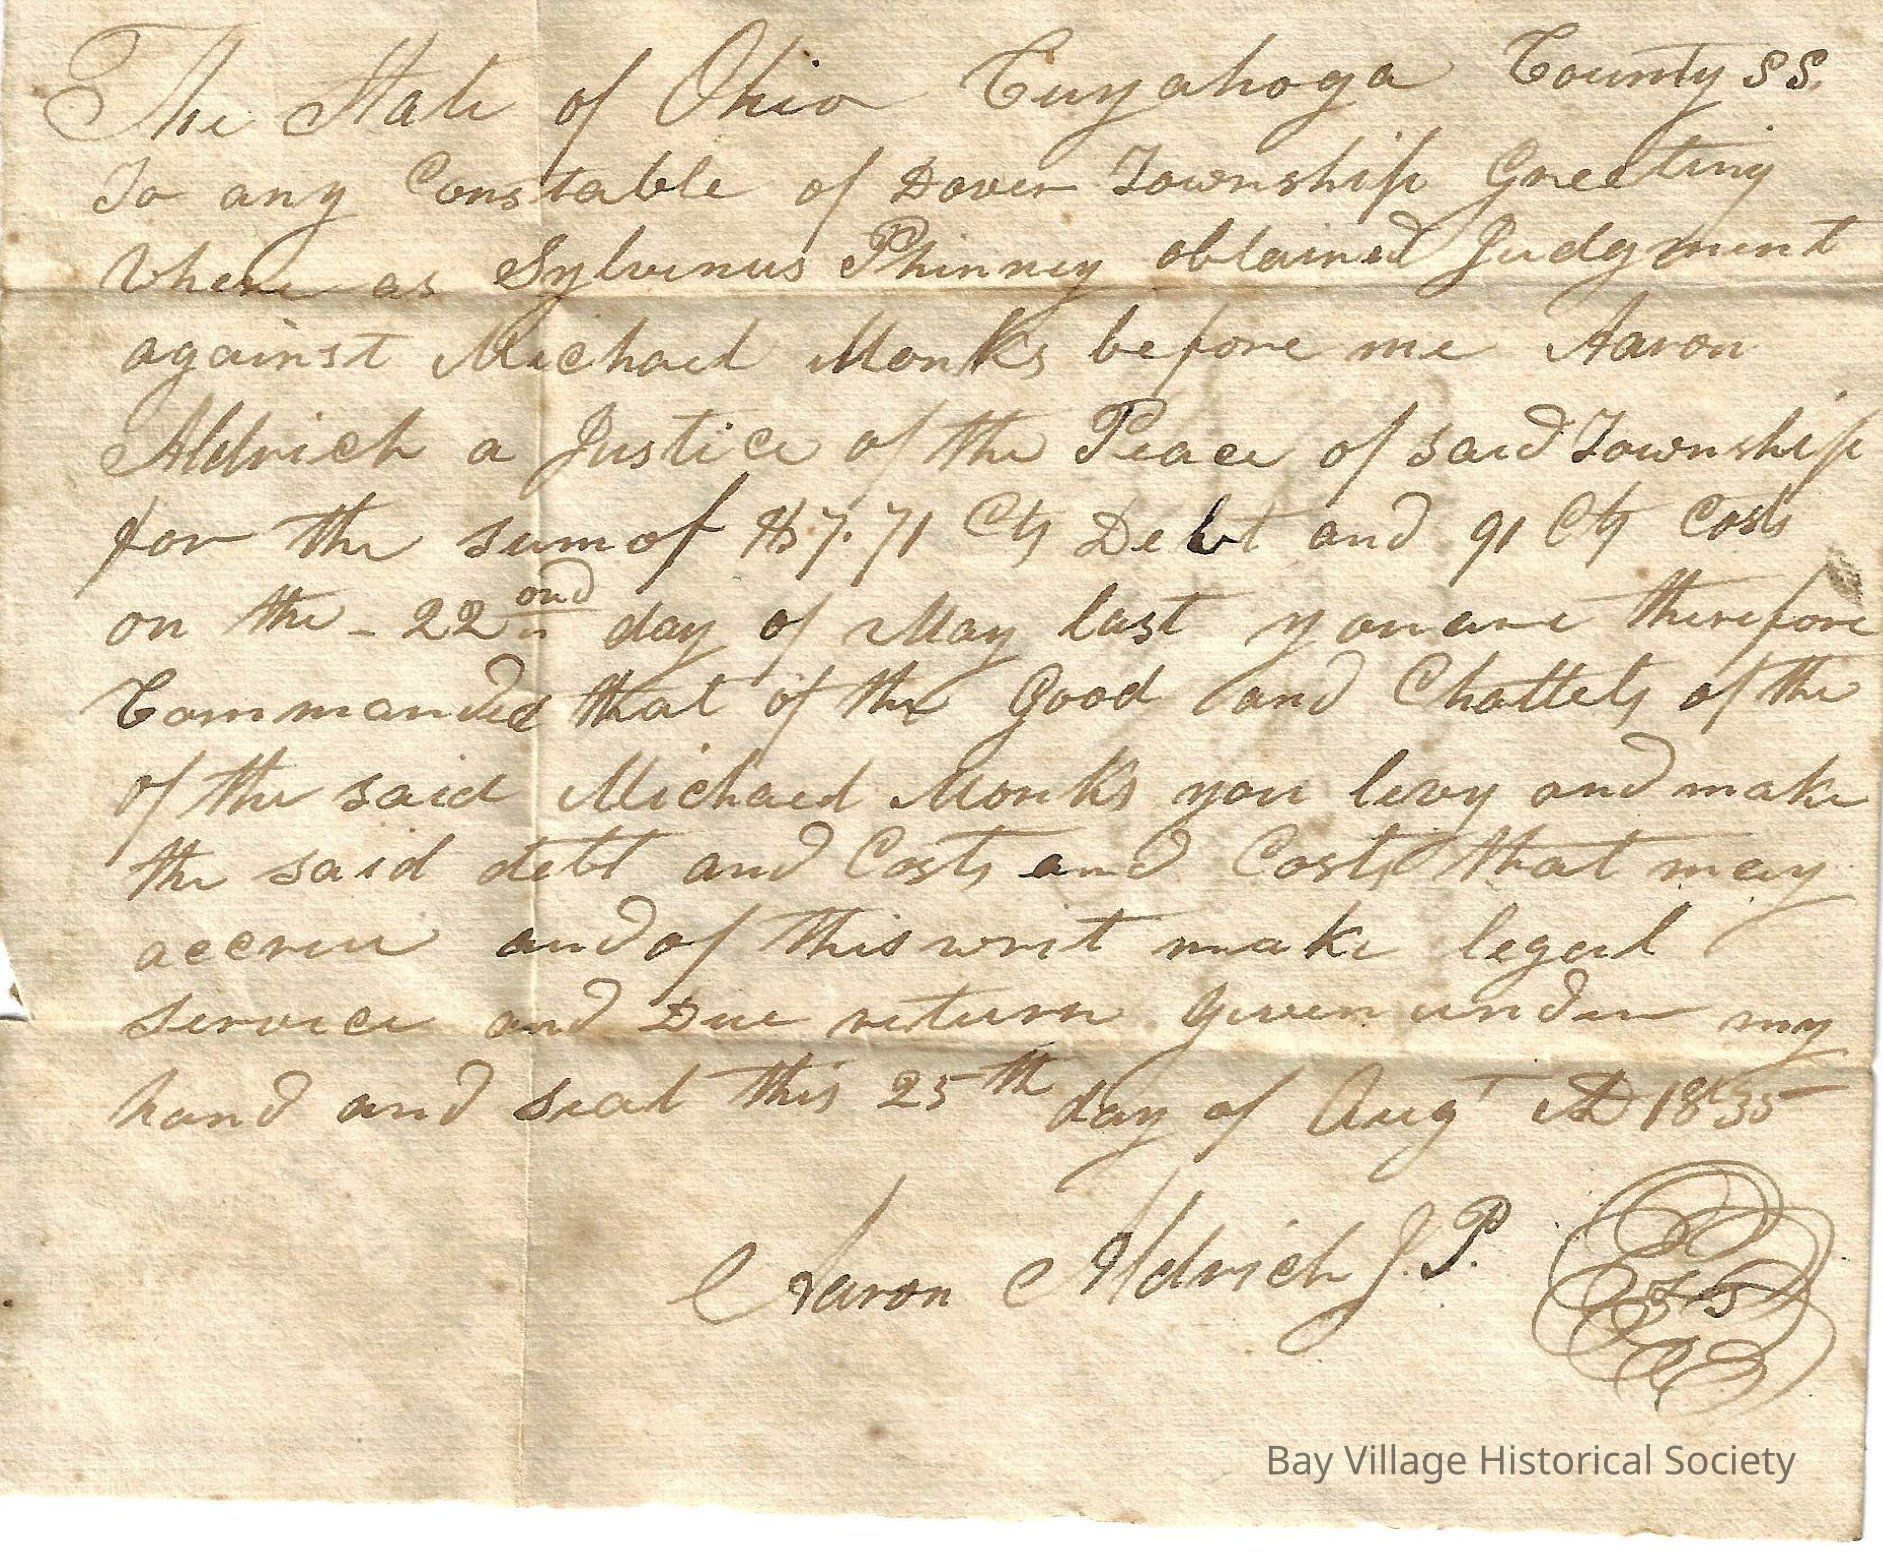 The State of Ohio Cuyahoga County SS.
To any Constable of Dover Township Greeting
Where as Sylvenus Phinney obtained Judgment
against Michael Monks before me Aaron
Aldrich a Justice of the Peace of said Township
for the sum of $7.71 Cts Debt and 91 Cts Costs
on the - 22ond day of May last you are therefore
Commanded that of the Good and Chattels of the
of the said Michael Monks you levy and make
the said debt and Costs and Costs that may
accrue and of this writ make legal
service and Due return Given under my
hand and seal this 25th day of Augt AD 1835
Aaron Aldrich J.P.
Bay Village Historical Society